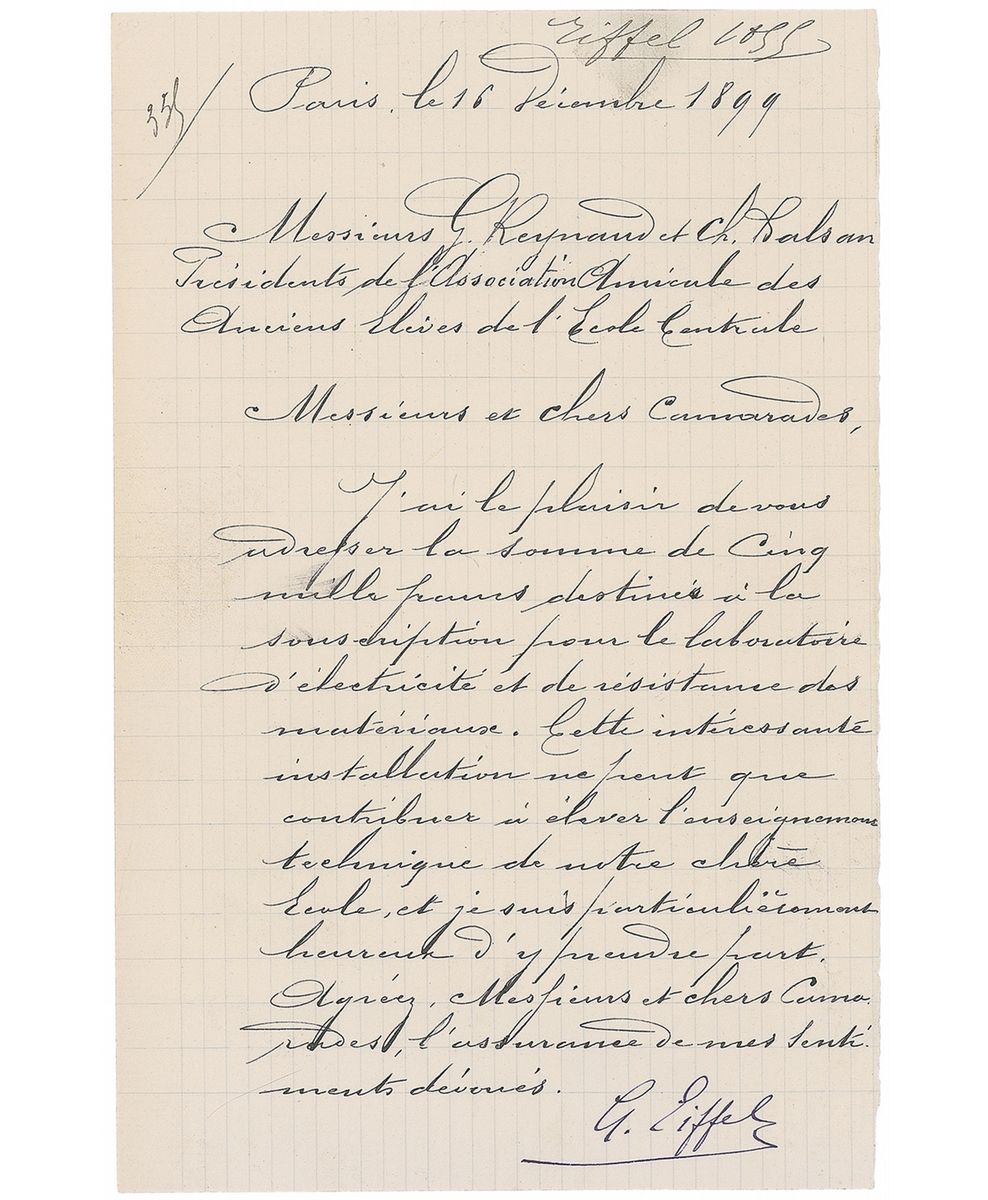 Eiffel 1855
Paris, le 16 Décembre 1899
Messieurs G. Reynaud et Ch. Balsan
Présidents de l'Association Amicale des
Anciens Elèves de l'Ecole Centrale
Messieurs et chers Camarades,
J'ai le plaisir de vous
adresser la somme de Cinq
mille francs destinés à la
souscription pour le laboratoire
d'électricité et de résistance des
matériaux. Cette intéressante
installation ne peut que
contribuer à élever l'enseignement
technique de notre chère
Ecole, et je suis particulièrement
heureux d'y prendre part.
Agréez, Messieurs et chers Cama-
rades, l'assurance de mes senti-
ments dévoués.
G. Eiffel